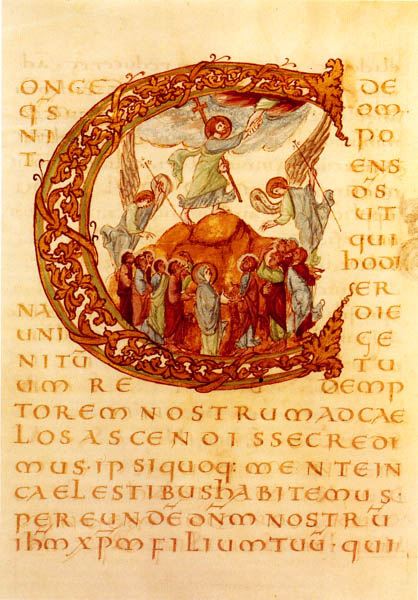 CONCE DE
Q̄S OM
NI PO
T ENS
D̄S
UT
QUI
hODI
ER
NA DIE
UNI GE
NITŪ TU
UM RE DEMP
TOREM NOSTRUM AD CAE
LOS ASCENDISSE CREDI
MUS· IPSI QUOQ: MENTE IN
CAELESTIBUS hABITEMUS·
PER EUNDĒ DN̄M NOSTRŪ
IhM̄ XP̄M FILIUM TUŪ· QUI